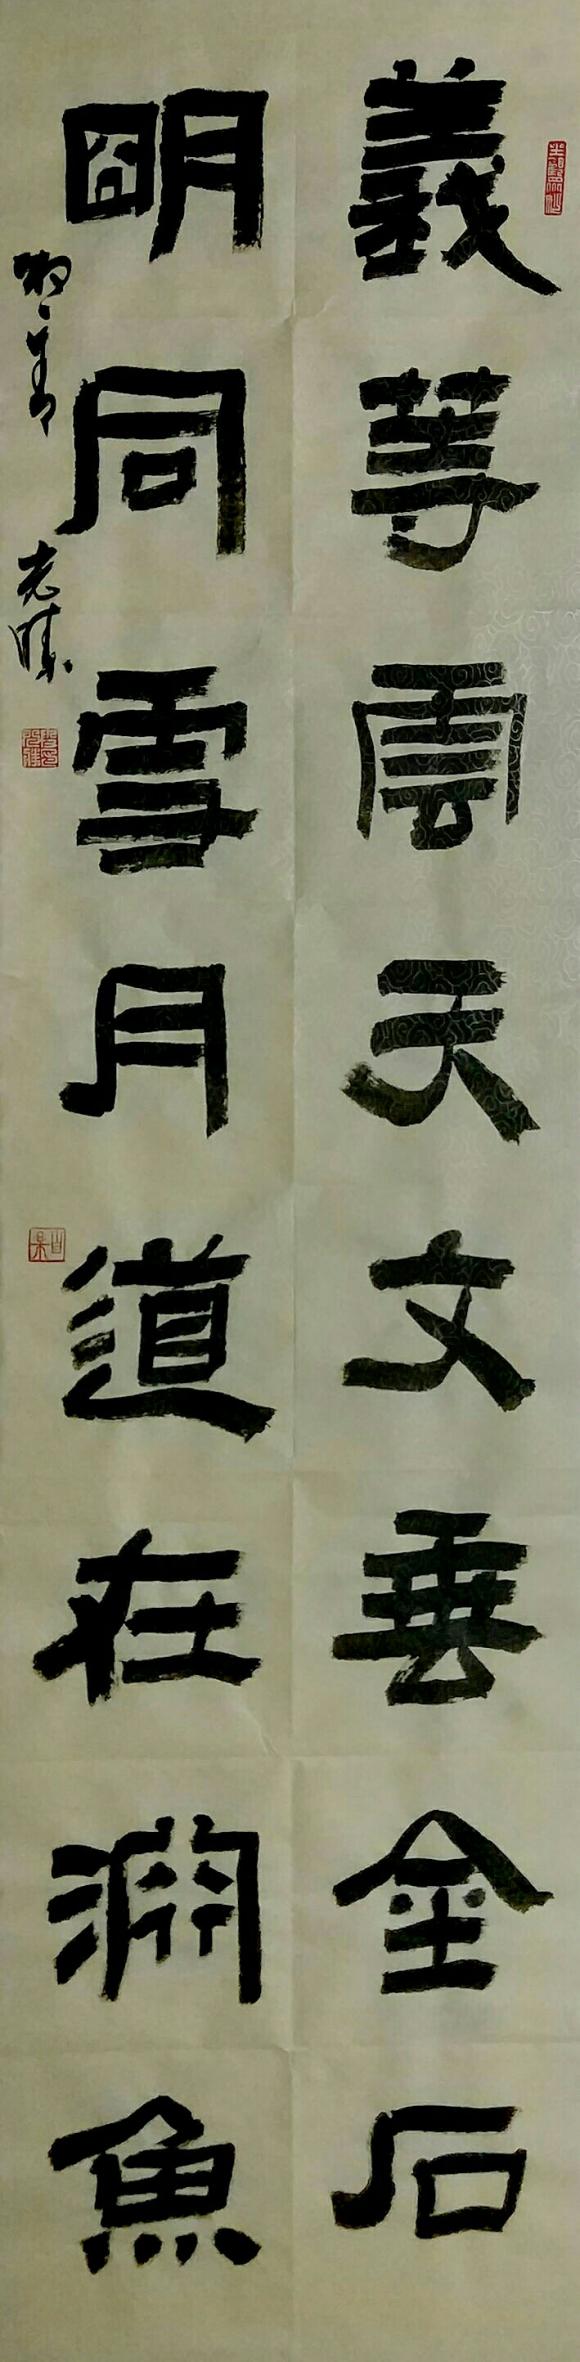 義等雲天文垂金石
明同雪月道在淵魚